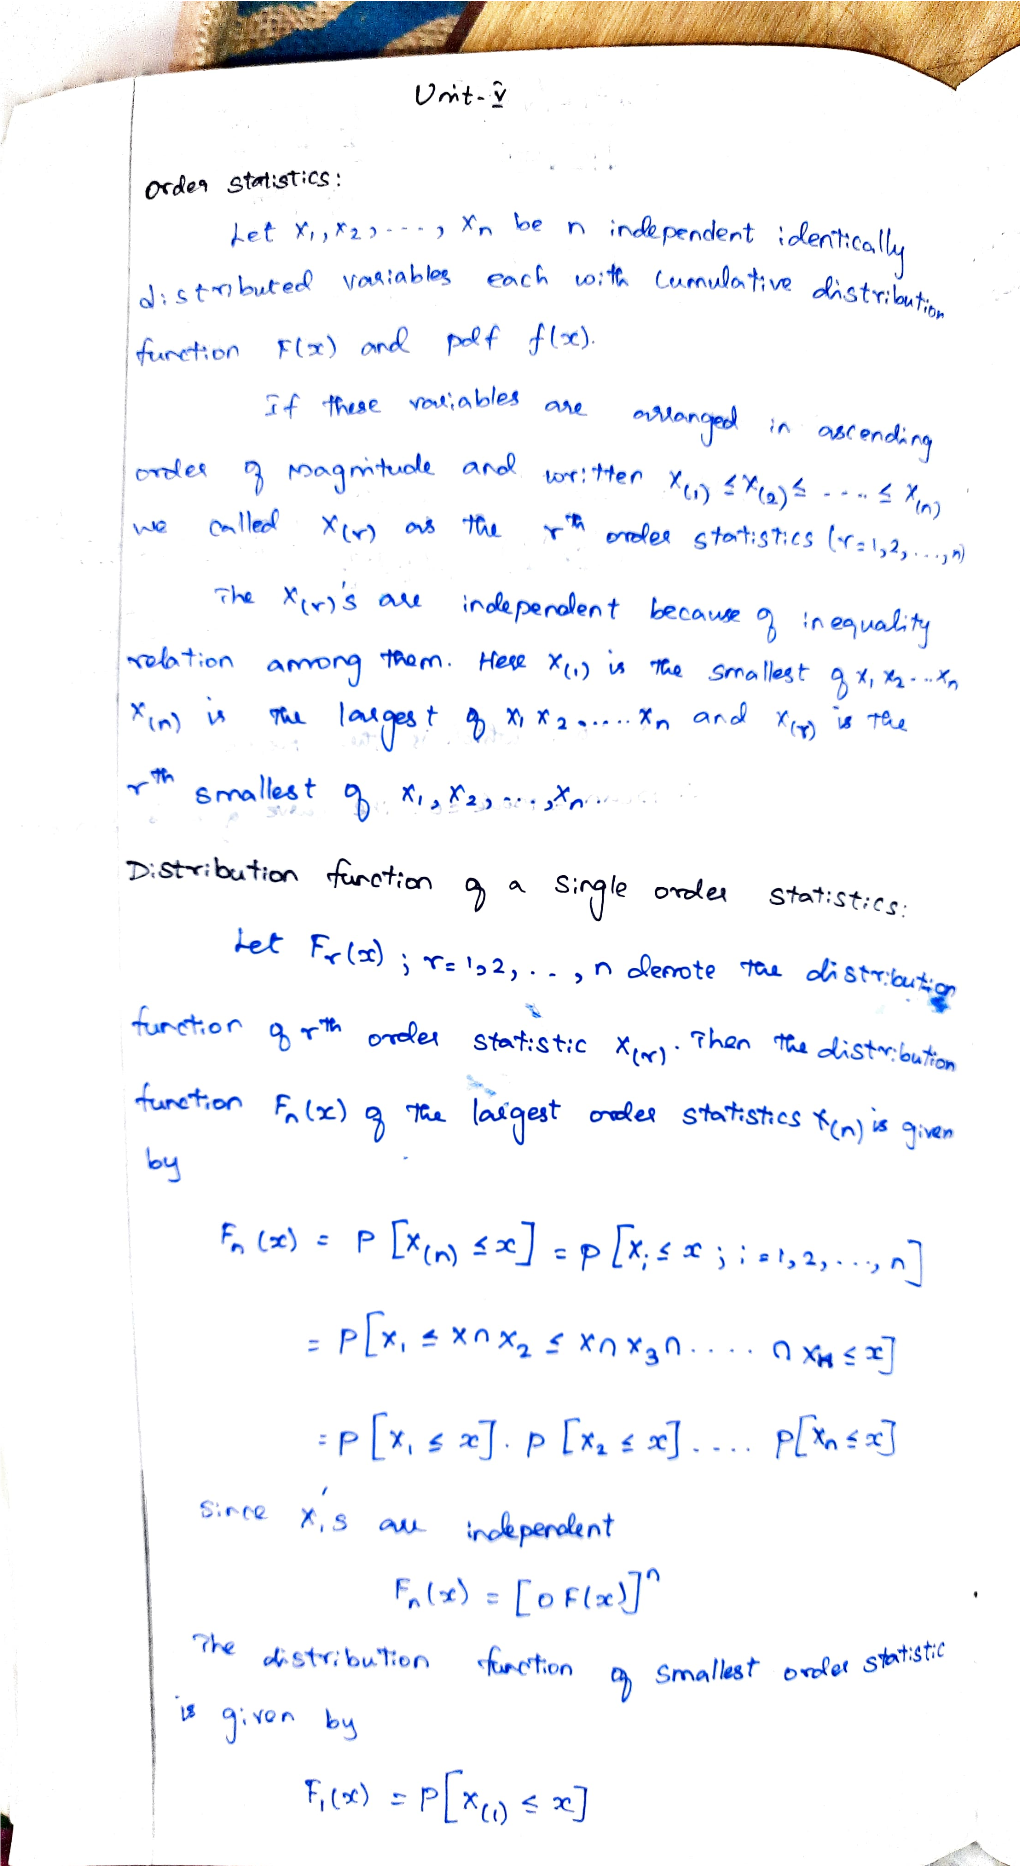 Unit-V
Order statistics:
Let X₁, X₂, ---, Xn be n independent identically
distributed variables each with Cumulative distribution
function F(x) and pdf f(x).
If these variables are arranged in ascending
order of magnitude and written X(1) ≤ X(2) ≤ ----- ≤ X(n)
we called X(r) as the rth order statistics (r=1,2,...,n)
The X(r)'s are independent because of inequality
relation among them. Here X(1) is the smallest of X₁ X₂ .... Xn
X(n) is the largest of X₁ X₂ ...... Xn and X(r) is the
rth smallest of X₁, X₂, ...., Xn.
Distribution function of a single order statistics:
Let Fr(x) ; r=1,2, . . , n denote the distribution
function of rth order statistic X(r). Then the distribution
function Fn(x) of the largest order statistics X(n) is given
by
Fn(x) = P [X(n) ≤ x] = P [Xi ≤ x ; i = 1,2, ..., n]
= P[X₁ ≤ x ∩ X₂ ≤ x ∩ X₃ ∩ .... ∩ Xn ≤ x]
= P [X₁ ≤ x]. P [X₂ ≤ x] .... P[Xn ≤ x]
Since Xi's are independent
Fn(x) = [0 F(x)]ⁿ
The distribution function of smallest order statistic
is given by
F₁(x) = P[X(1) ≤ x]